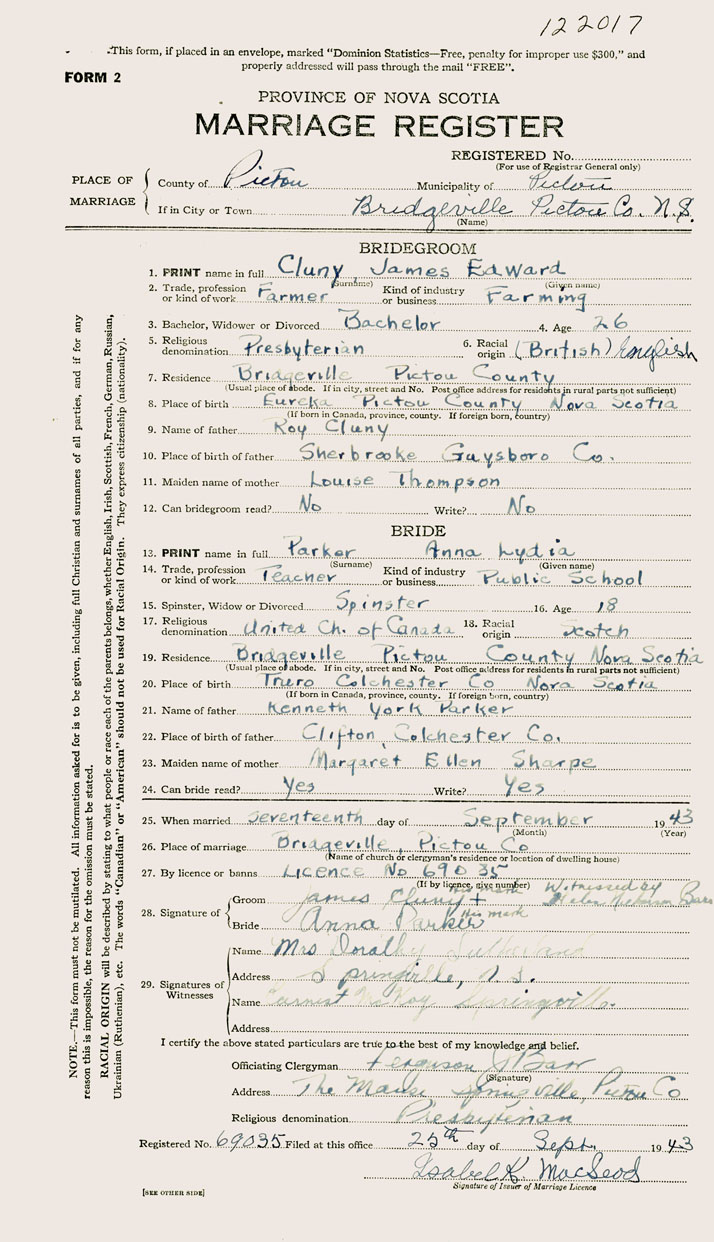 122017
This form, if placed in an envelope, marked "Dominion Statistics—Free, penalty for improper use $300," and
properly addressed will pass through the mail "FREE".
FORM 2
PROVINCE OF NOVA SCOTIA
MARRIAGE REGISTER
REGISTERED No.
(For use of Registrar General only)
PLACE OF MARRIAGE
County of Pictou Municipality of Pictou
If in City or Town Bridgeville Pictou Co. N.S.
(Name)
BRIDEGROOM
1. PRINT name in full Cluny, James Edward
(Surname) (Given name)
2. Trade, profession or kind of work Farmer Kind of industry or business Farming
3. Bachelor, Widower or Divorced Bachelor 4. Age 26
5. Religious denomination Presbyterian 6. Racial origin (British) English
7. Residence Bridgeville Pictou County
(Usual place of abode. If in city, street and No. Post office address for residents in rural parts not sufficient)
8. Place of birth Eureka Pictou County Nova Scotia
(If born in Canada, province, county. If foreign born, country)
9. Name of father Roy Cluny
10. Place of birth of father Sherbrooke Guysboro Co.
11. Maiden name of mother Louise Thompson
12. Can bridegroom read? No Write? No
BRIDE
13. PRINT name in full Parker Anna Lydia
(Surname) (Given name)
14. Trade, profession or kind of work Teacher Kind of industry or business Public School
15. Spinster, Widow or Divorced Spinster 16. Age 18
17. Religious denomination United Ch. of Canada 18. Racial origin Scotch
19. Residence Bridgeville Pictou County Nova Scotia
(Usual place of abode. If in city, street and No. Post office address for residents in rural parts not sufficient)
20. Place of birth Truro Colchester Co Nova Scotia
(If born in Canada, province, county. If foreign born, country)
21. Name of father Kenneth York Parker
22. Place of birth of father Clifton, Colchester Co.
23. Maiden name of mother Margaret Ellen Sharpe
24. Can bride read? Yes Write? Yes
25. When married seventeenth day of September 1943
(Month) (Year)
26. Place of marriage Bridgeville, Pictou Co
(Name of church or clergyman's residence or location of dwelling house)
27. By licence or banns Licence No 69035
(If by licence, give number)
28. Signature of
Groom James Cluny + his mark Witnessed by Helen
Bride Anna Parker His mark
29. Signatures of Witnesses
Name Mrs Dorothy Sutherland
Address Springville, N.S.
Name McKay Springville.
Address
I certify the above stated particulars are true to the best of my knowledge and belief.
Officiating Clergyman Ferguson J Barr
(Signature)
Address The Manse Springville, Pictou Co
Religious denomination Presbyterian
Registered No. 69035 Filed at this office 25th day of Sept. 1943
Isabel K. MacLeod
Signature of Issuer of Marriage Licence
[SEE OTHER SIDE]
NOTE.—This form must not be mutilated. All information asked for is to be given, including full Christian and surnames of all parties, and if for any
reason this is impossible, the reason for the omission must be stated.
RACIAL ORIGIN will be described by stating to what people or race each of the parents belongs, whether English, Irish, Scottish, French, German, Russian,
Ukrainian (Ruthenian), etc. The words "Canadian" or "American" should not be used for Racial Origin. They express citizenship (nationality).